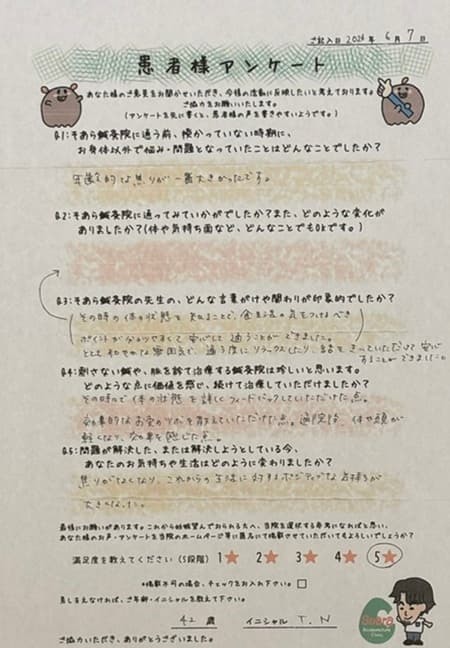 ご記入日 2026年 6月 7日
患者様アンケート
あなた様のご意見をお聞かせいただき、今後の活動に反映したいと考えております。
ご協力をお願いいたします。
(アンケートを先に書くと、患者様の声を書きやすいようです。)
Q1:そあら鍼灸院に通う前、授かっていない時期に、
お身体以外で悩み・問題となっていたことはどんなことでしたか?
年齢的な焦りが一番大きかったです。
Q2:そあら鍼灸院に通ってみていかがでしたか?また、どのような変化が
ありましたか?(体や気持ち面など、どんなことでもOKです。)
Q3:そあら鍼灸院の先生の、どんな言葉がけや関わりが印象的でしたか?
その時の体の状態を知ることで、食生活の気をつけるべき
ポイントが分かりやすくて安心して通うことができました。
とてもおだやかな雰囲気で、通う度にリラックスしたり、話をきいていただけて安心
することができました。
Q4:刺さない鍼や、脈を診て治療する鍼灸院は珍しいと思います。
どのような点に価値を感じ、続けて治療していただけましたか?
その時の体の状態を詳しくフィードバックしていただけた点。
効果的なお灸のツボを教えていただけた点。通院後は、体や頭が
軽くなり、効果を感じた点。
Q5:問題が解決した、または解決しようとしている今、
あなたのお気持ちや生活はどのように変わりましたか?
焦りがなくなり、これからの生活に対するポジティブな気持ちが
大きくなった。
最後にお願いがあります。これから妊娠望んでおられる方へ、当院を選択する参考になればと思い、
あなた様のお声・アンケートを当院のホームページ等に匿名にて掲載させていただいてもよろしいでしょうか?
満足度を教えてください(5段階) 1★ 2★ 3★ 4★ 5★
*掲載不可の場合、チェックをお入れ下さい。□
差し支えなければ、ご年齢・イニシャルを教えて下さい。
42 歳 イニシャル T.N
ご協力いただき、ありがとうございました。
Soara
Acupuncture
Clinic